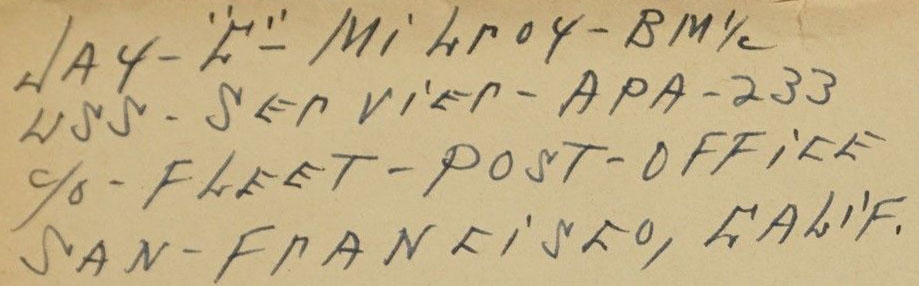 JAY-"C"-MiLroY-BM1/c
USS-SErViEr-APA-233
c/o-FLEET-POST-OFFiCE
SAN-FrANCiSCO, CALiF.